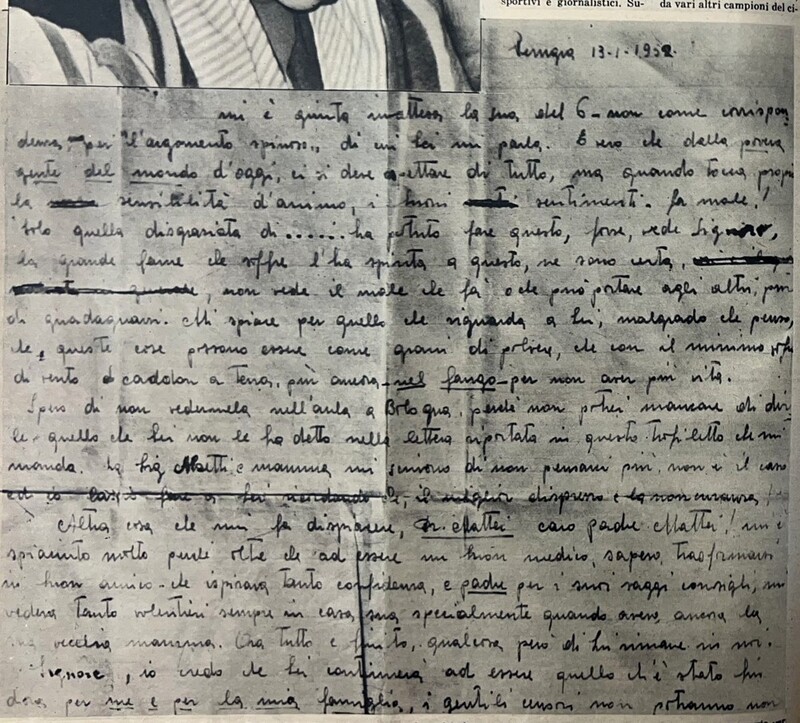 sportivi e giornalistici. Su-
da vari altri campioni del ci-
Perugia 13-1-1952.
mi è giunta inattesa la sua del 6- non come corrispon
denza, per "l'argomento spinoso", di cui Lei mi parla. È vero che dalla povera
gente del mondo d'oggi, ci si deve aspettare di tutto, ma quando tocca propri
la sensibilità d'animo, i buoni sentimenti. fa male!
Solo quella disgraziata di...... ha potuto fare questo, forse, vede Signore,
la grande fame che soffre l'ha spinta a questo, ne sono certa,
, non vede il male che fà o che può portare agli altri, più
di guadagnarsi. Mi spiace per quello che riguarda a Lei, malgrado che penso,
che, queste cose possono essere come grani di polvere, che con il minimo
di vento cadolon a terra, più ancora nel fango per non aver più vita.
Spero di non vedermela nell'aula a Bologna, perchè non potrei mancare di dir
le quello che Lei non le ha detto nella lettera riportata in questo trafiletto che mi
manda. La Sig. e mamma mi scrivono di non pensarci più, non è il caso
ed io il miglior disprezzo è la noncuranza!
Altra cosa che mi fa dispiacere, Dr. Mattei caro padre Mattei! mi è
spiaciuto molto perchè oltre che ad essere un buon medico, sapeva trasformarsi
in buon amico che ispirava tanto confidenza, e padre per i suoi saggi consigli, mi
vedeva tanto volentieri sempre in casa sua specialmente quando aveva ancora la
sua vecchia mamma. Ora tutto è finito, qualcosa però di Lui rimane in noi.
Signore, io credo che Lei continuerà ad essere quello ch'è stato fin
dora per me e per la mia famiglia, i gentili censori non potranno non